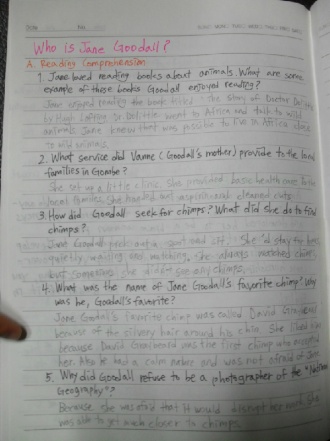 Who is Jane Goodall?
A. Reading Comprehension
1. Jane loved reading books about animals. What are some
example of those books Goodall enjoyed reading?
Jane enjoyed reading the book titled "The story of Doctor Dolittle
by Hugh Lofting. Dr. Dolittle went to Africa and talk to wild
animals. Jane knew that was possible to live in Africa close
to wild animals.
2. What service did Vanne (Goodall's mother) provide to the local
families in Gombe?
She set up a little clinic. She provided basic health care to the
local families. She handed out aspirin and cleaned cuts.
3. How did Goodall seek for chimps? What did she do to find
chimps?
Jane Goodall She'd stay for hours
quietly, waiting and watching. She always watched chimps,
but sometimes she didn't see any chimps.
4. What was the name of Jane Goodall's favorite chimp? Why
was he, Goodall's favorite?
Jane Goodall's favorite chimp was called David Greybeard
because of the silvery hair around his chin. She liked him
because David Greybeard was the first chimp who accepted
her. Also he had a calm nature and was not afraid of Jane.
5. Why did Goodall refuse to be a photographer of the "National
Geography"?
Because she was afraid that it would disrupt her work. She
was able to get much closer to chimps.